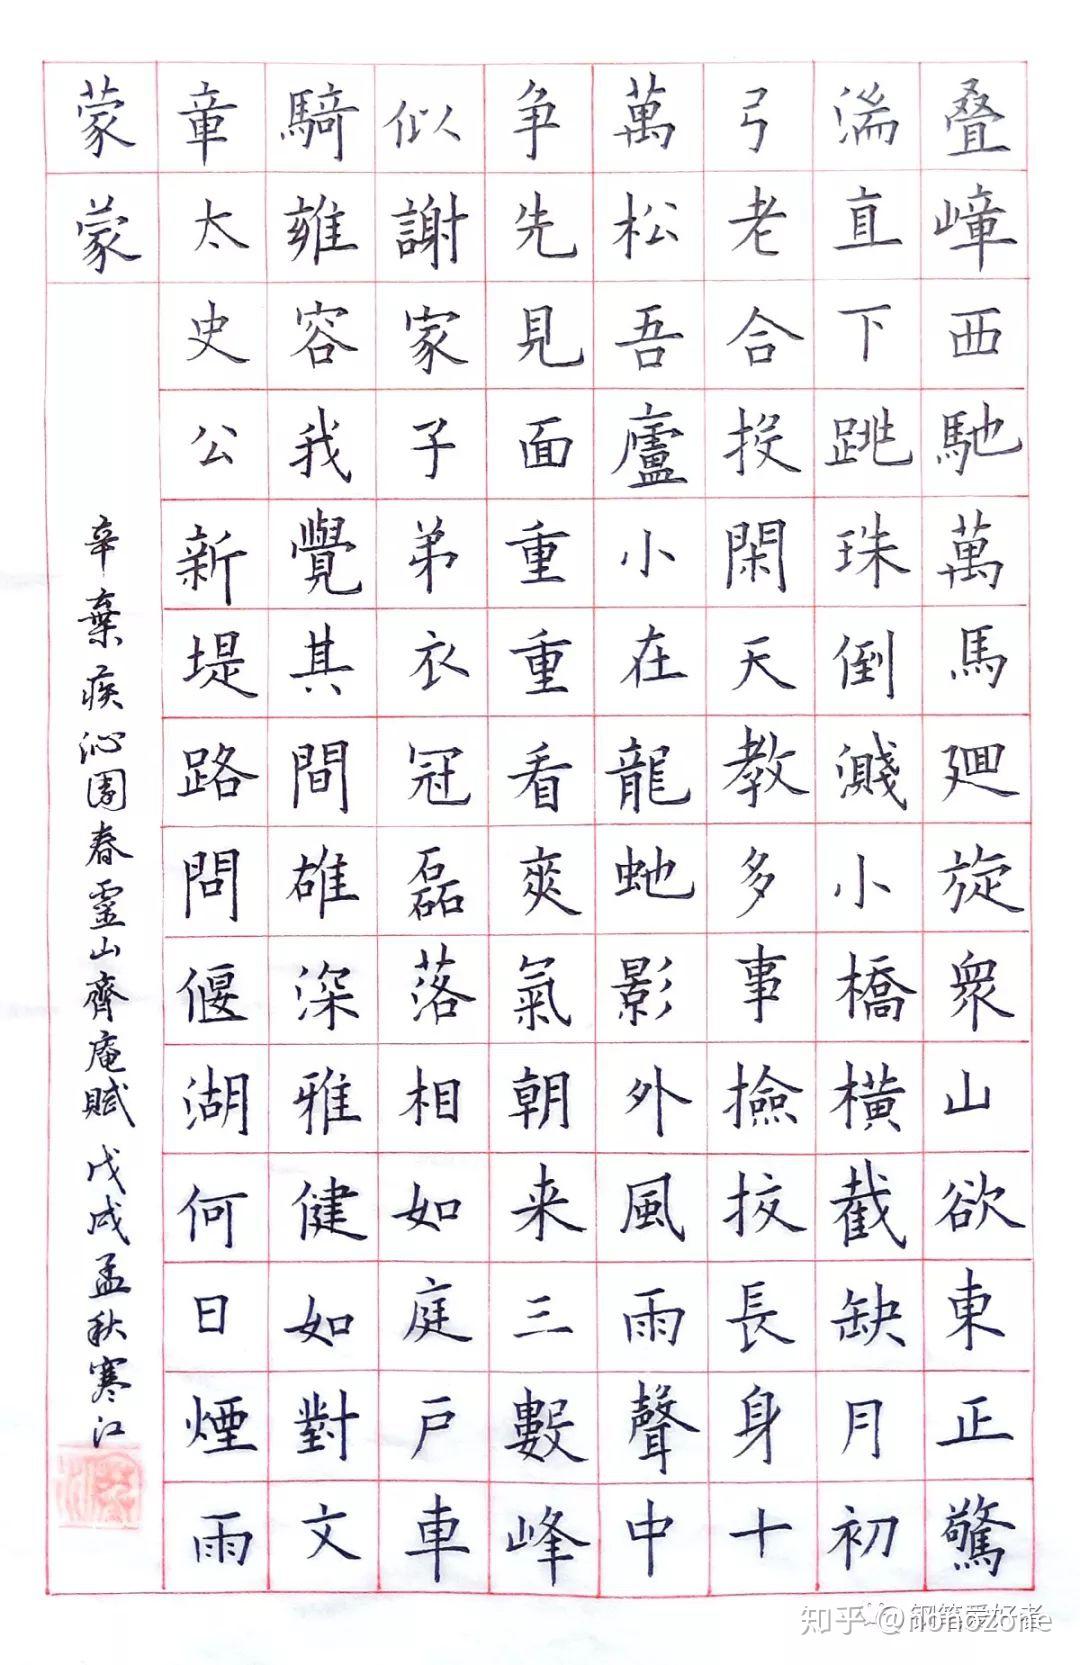 叠嶂西馳萬馬廻旋衆山欲東正驚
湍直下跳珠倒濺小橋橫截缺月初
弓老合投閑天教多事撿挍長身十
萬松吾廬小在龍虵影外風雨聲中
争先見面重重看爽氣朝来三數峰
似謝家子弟衣冠磊落相如庭戶車
騎雍容我覺其間雄深雅健如對文
章太史公新堤路問偃湖何日煙雨
蒙蒙
辛棄疾沁園春靈山齊庵賦 戊戌孟秋寒江
钢笔爱好者
知乎 @nonozone